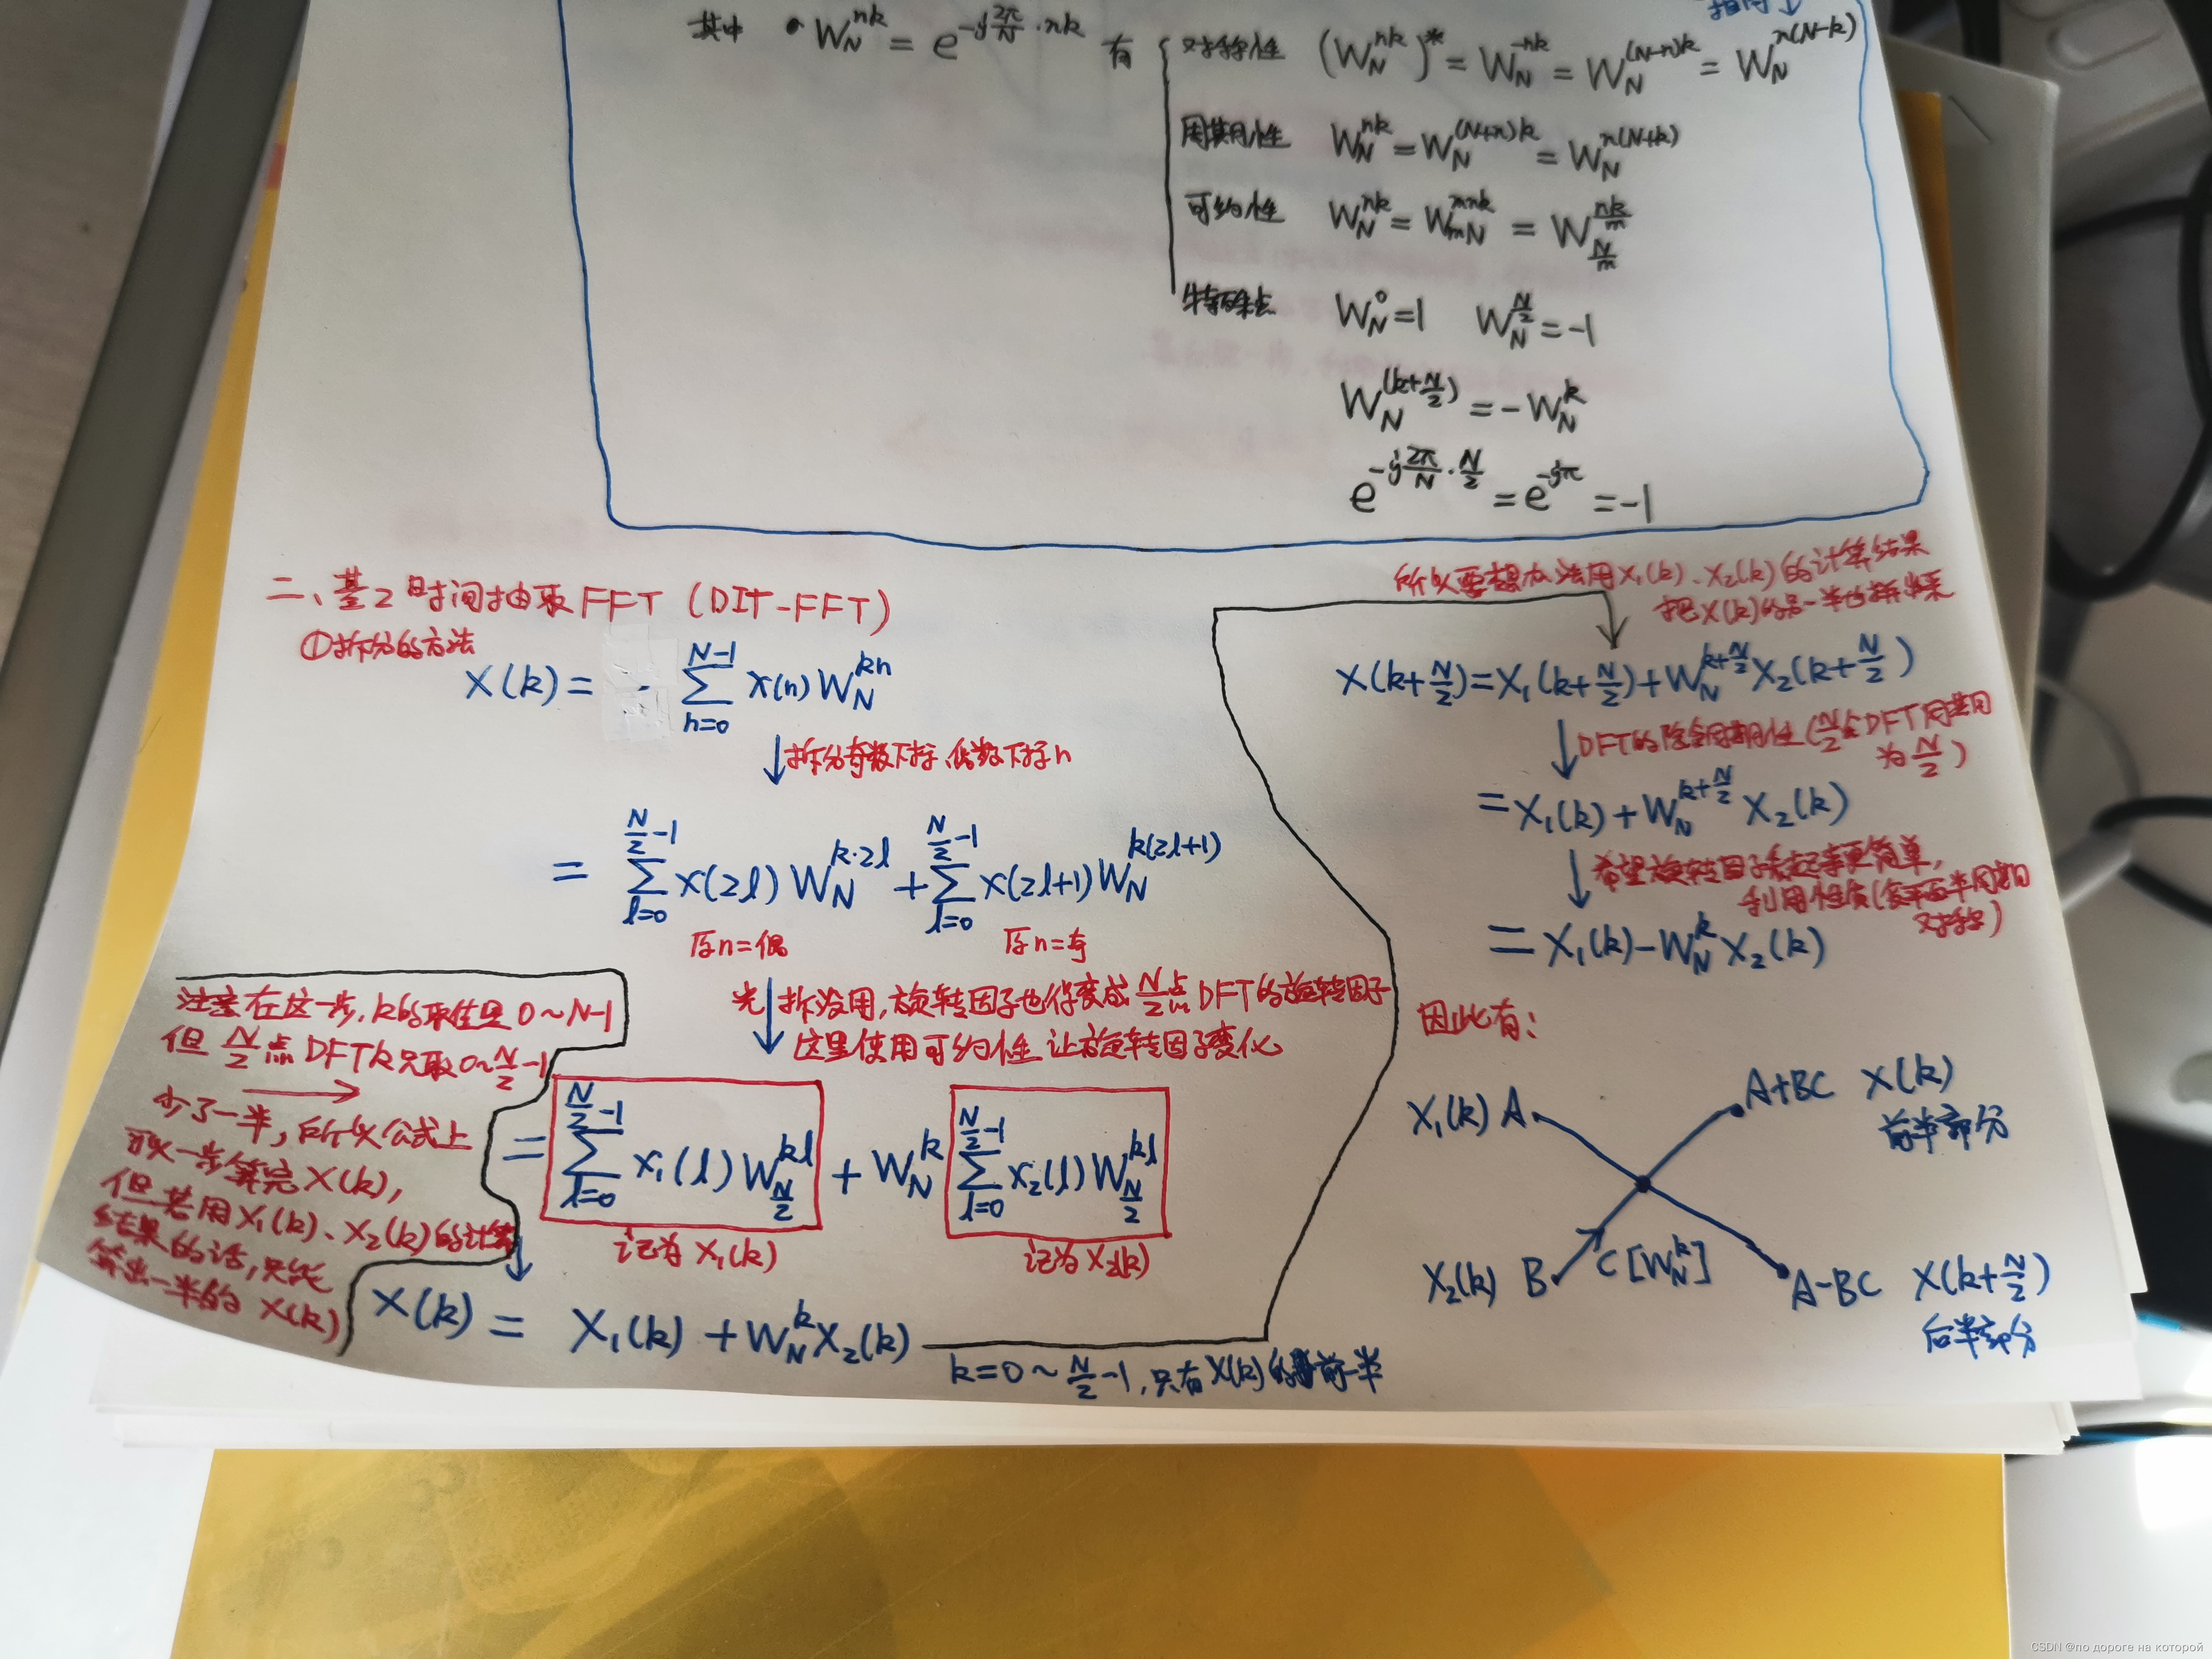 其中 • W_N^{nk} = e^{-j\frac{2π}{N}·nk} 有
对称性 (W_N^{nk})^* = W_N^{-nk} = W_N^{(N-n)k} = W_N^{n(N-k)}
周期性 W_N^{nk} = W_N^{(N+n)k} = W_N^{n(N+k)}
可约性 W_N^{nk} = W_{mN}^{mnk} = W_{\frac{N}{m}}^{\frac{nk}{m}}
特殊点 W_N^0 = 1 W_N^{\frac{N}{2}} = -1
W_N^{(k+\frac{N}{2})} = -W_N^k
e^{-j\frac{2π}{N}·\frac{N}{2}} = e^{-jπ} = -1
二、基2时间抽取FFT (DIT-FFT)
①拆分的方法
X(k) = \sum_{n=0}^{N-1} x(n) W_N^{kn}
↓拆分奇数下标、偶数下标n
= \sum_{l=0}^{\frac{N}{2}-1} x(2l) W_N^{k·2l} + \sum_{l=0}^{\frac{N}{2}-1} x(2l+1) W_N^{k(2l+1)}
原n=偶 原n=奇
光拆没用,旋转因子也得变成\frac{N}{2}点DFT的旋转因子
这里使用可约性 让旋转因子变化
= \sum_{l=0}^{\frac{N}{2}-1} x_1(l) W_{\frac{N}{2}}^{kl} + W_N^k \sum_{l=0}^{\frac{N}{2}-1} x_2(l) W_{\frac{N}{2}}^{kl}
记为 X_1(k) 记为 X_2(k)
X(k) = X_1(k) + W_N^k X_2(k)
k=0~\frac{N}{2}-1, 只有X(k)的前一半
注意在这一步,k的取值是0~N-1
但\frac{N}{2}点DFT k只取0~\frac{N}{2}-1
少了一半,所以公式上
可以一步算完X(k),
但若用X_1(k)、X_2(k)的计算
结果的话,只能
算出一半的 X(k)
所以要想办法用X_1(k)、X_2(k)的计算结果
把X(k)的另一半也拆出来
X(k+\frac{N}{2}) = X_1(k+\frac{N}{2}) + W_N^{k+\frac{N}{2}} X_2(k+\frac{N}{2})
↓DFT的隐含周期性(\frac{N}{2}点DFT周期
为\frac{N}{2})
= X_1(k) + W_N^{k+\frac{N}{2}} X_2(k)
↓希望旋转因子看起来更简单,
利用性质(复平面半周期
对称)
= X_1(k) - W_N^k X_2(k)
因此有:
X_1(k) A A+BC X(k)
前半部分
X_2(k) B C[W_N^k] A-BC X(k+\frac{N}{2})
后半部分
CSDN @по дороге на которой